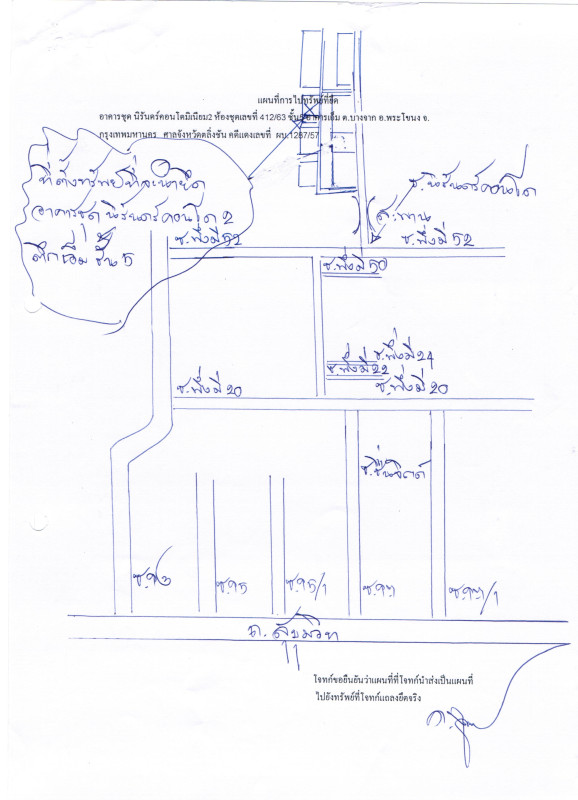 แผนที่การไปทรัพย์ที่ยึด
อาคารชุด นิรันดร์คอนโดมิเนียม2 ห้องชุดเลขที่ 412/63 ชั้น5 ต.บางจาก อ.พระโขนง จ.
กรุงเทพมหานคร ศาลจังหวัดตลิ่งชัน คดีแดงเลขที่ ผบ.1287/57
ที่ตั้งทรัพย์ที่จะนำยึด
อาคารชุดนิรันดร์คอนโด 2
ชั้น 5
ซ.นิรันดร์คอนโด
สะพาน
ซ.พึ่งมี 52
ซ.พึ่งมี 52
ซ.พึ่งมี 50
ซ.พึ่งมี 24
ซ.พึ่งมี 22
ซ.พึ่งมี 20
ซ.พึ่งมี 20
ถ. สุขุมวิท
โจทก์ขอยืนยันว่าแผนที่ที่โจทก์นำส่งเป็นแผนที่
ไปยังทรัพย์ที่โจทก์แถลงยึดจริง